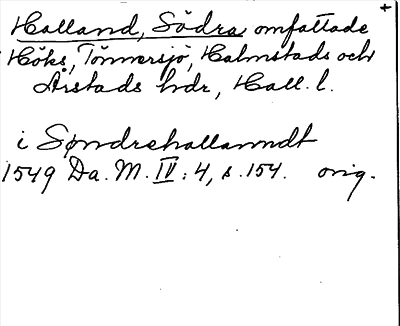 Halland, Södra omfattade
Höks, Tönnersjö, Halmstads och
Årstads hdr, Hall. l.
i Søndrehallanndt
1549 Da. M. IV : 4, s. 154. orig.